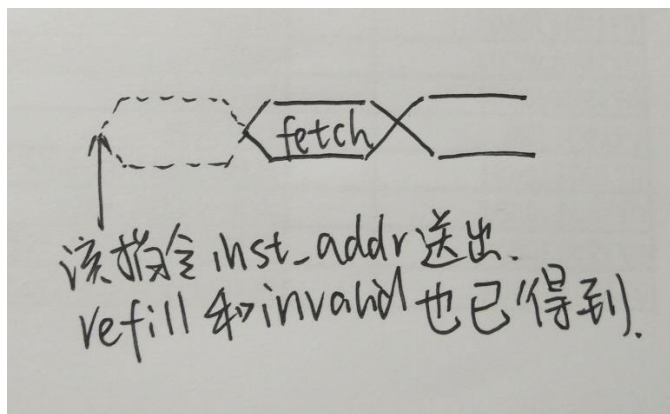 fetch
该指令inst_addr送出.
refill和invalid也已得到.